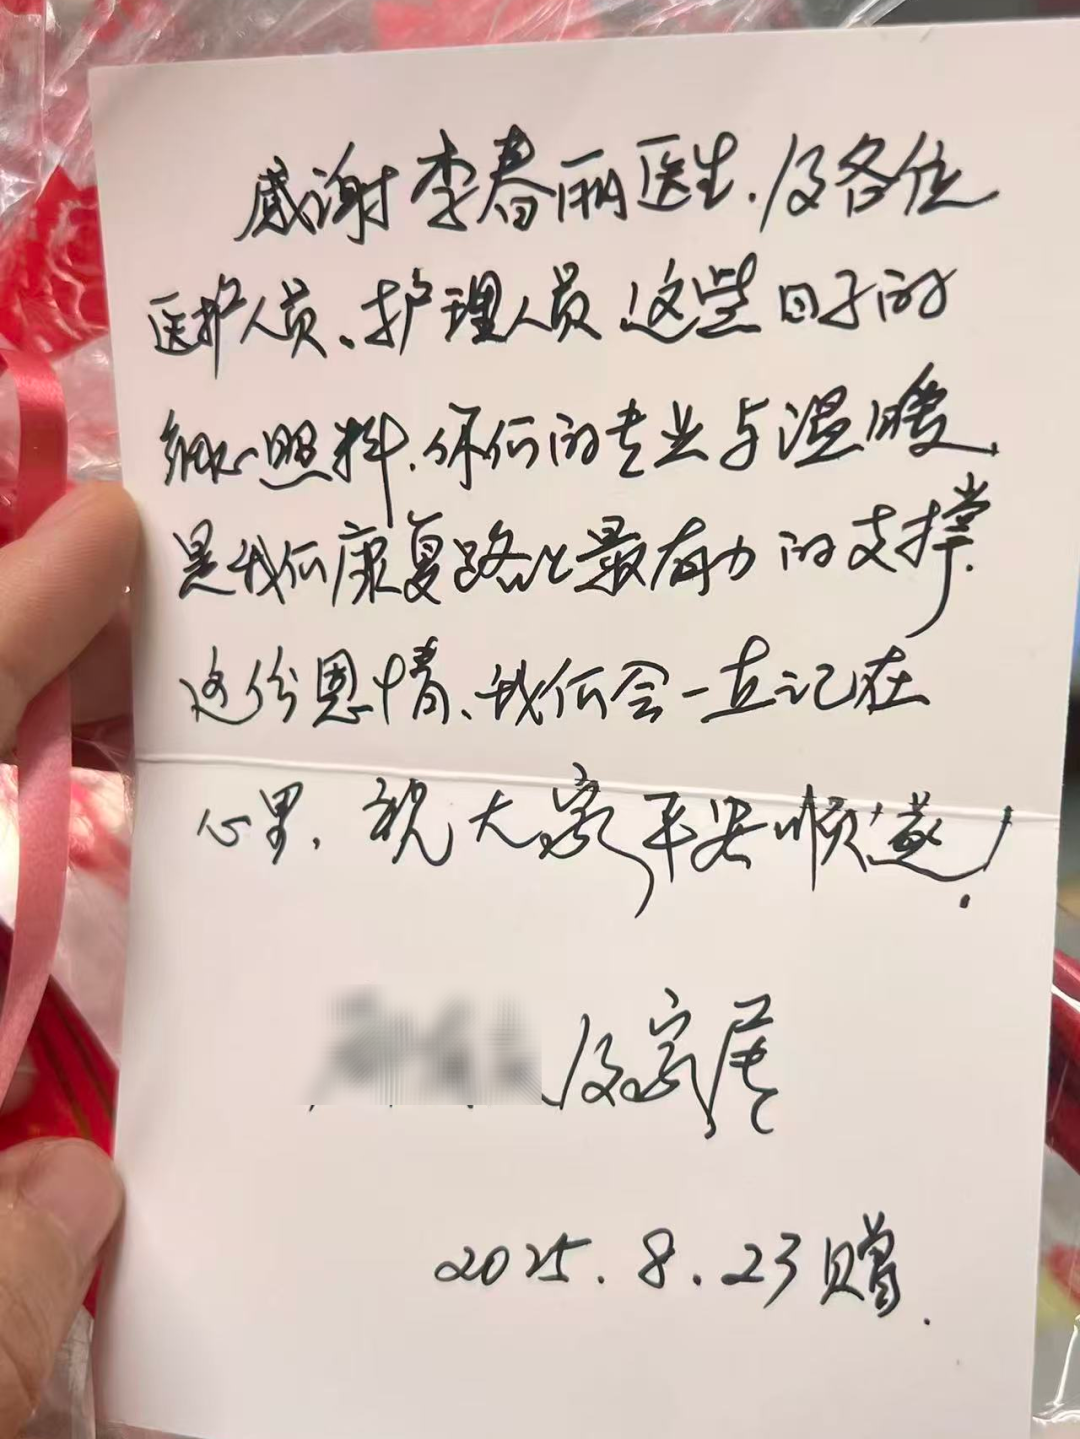 感谢李春丽医生.及各位
医护人员、护理人员这些日子的
细心照料.你们的专业与温暖
是我们康复路上最有力的支撑.
这份恩情、我们会一直记在
心里.祝大家平安顺遂!
及家属
2025.8.23赠.